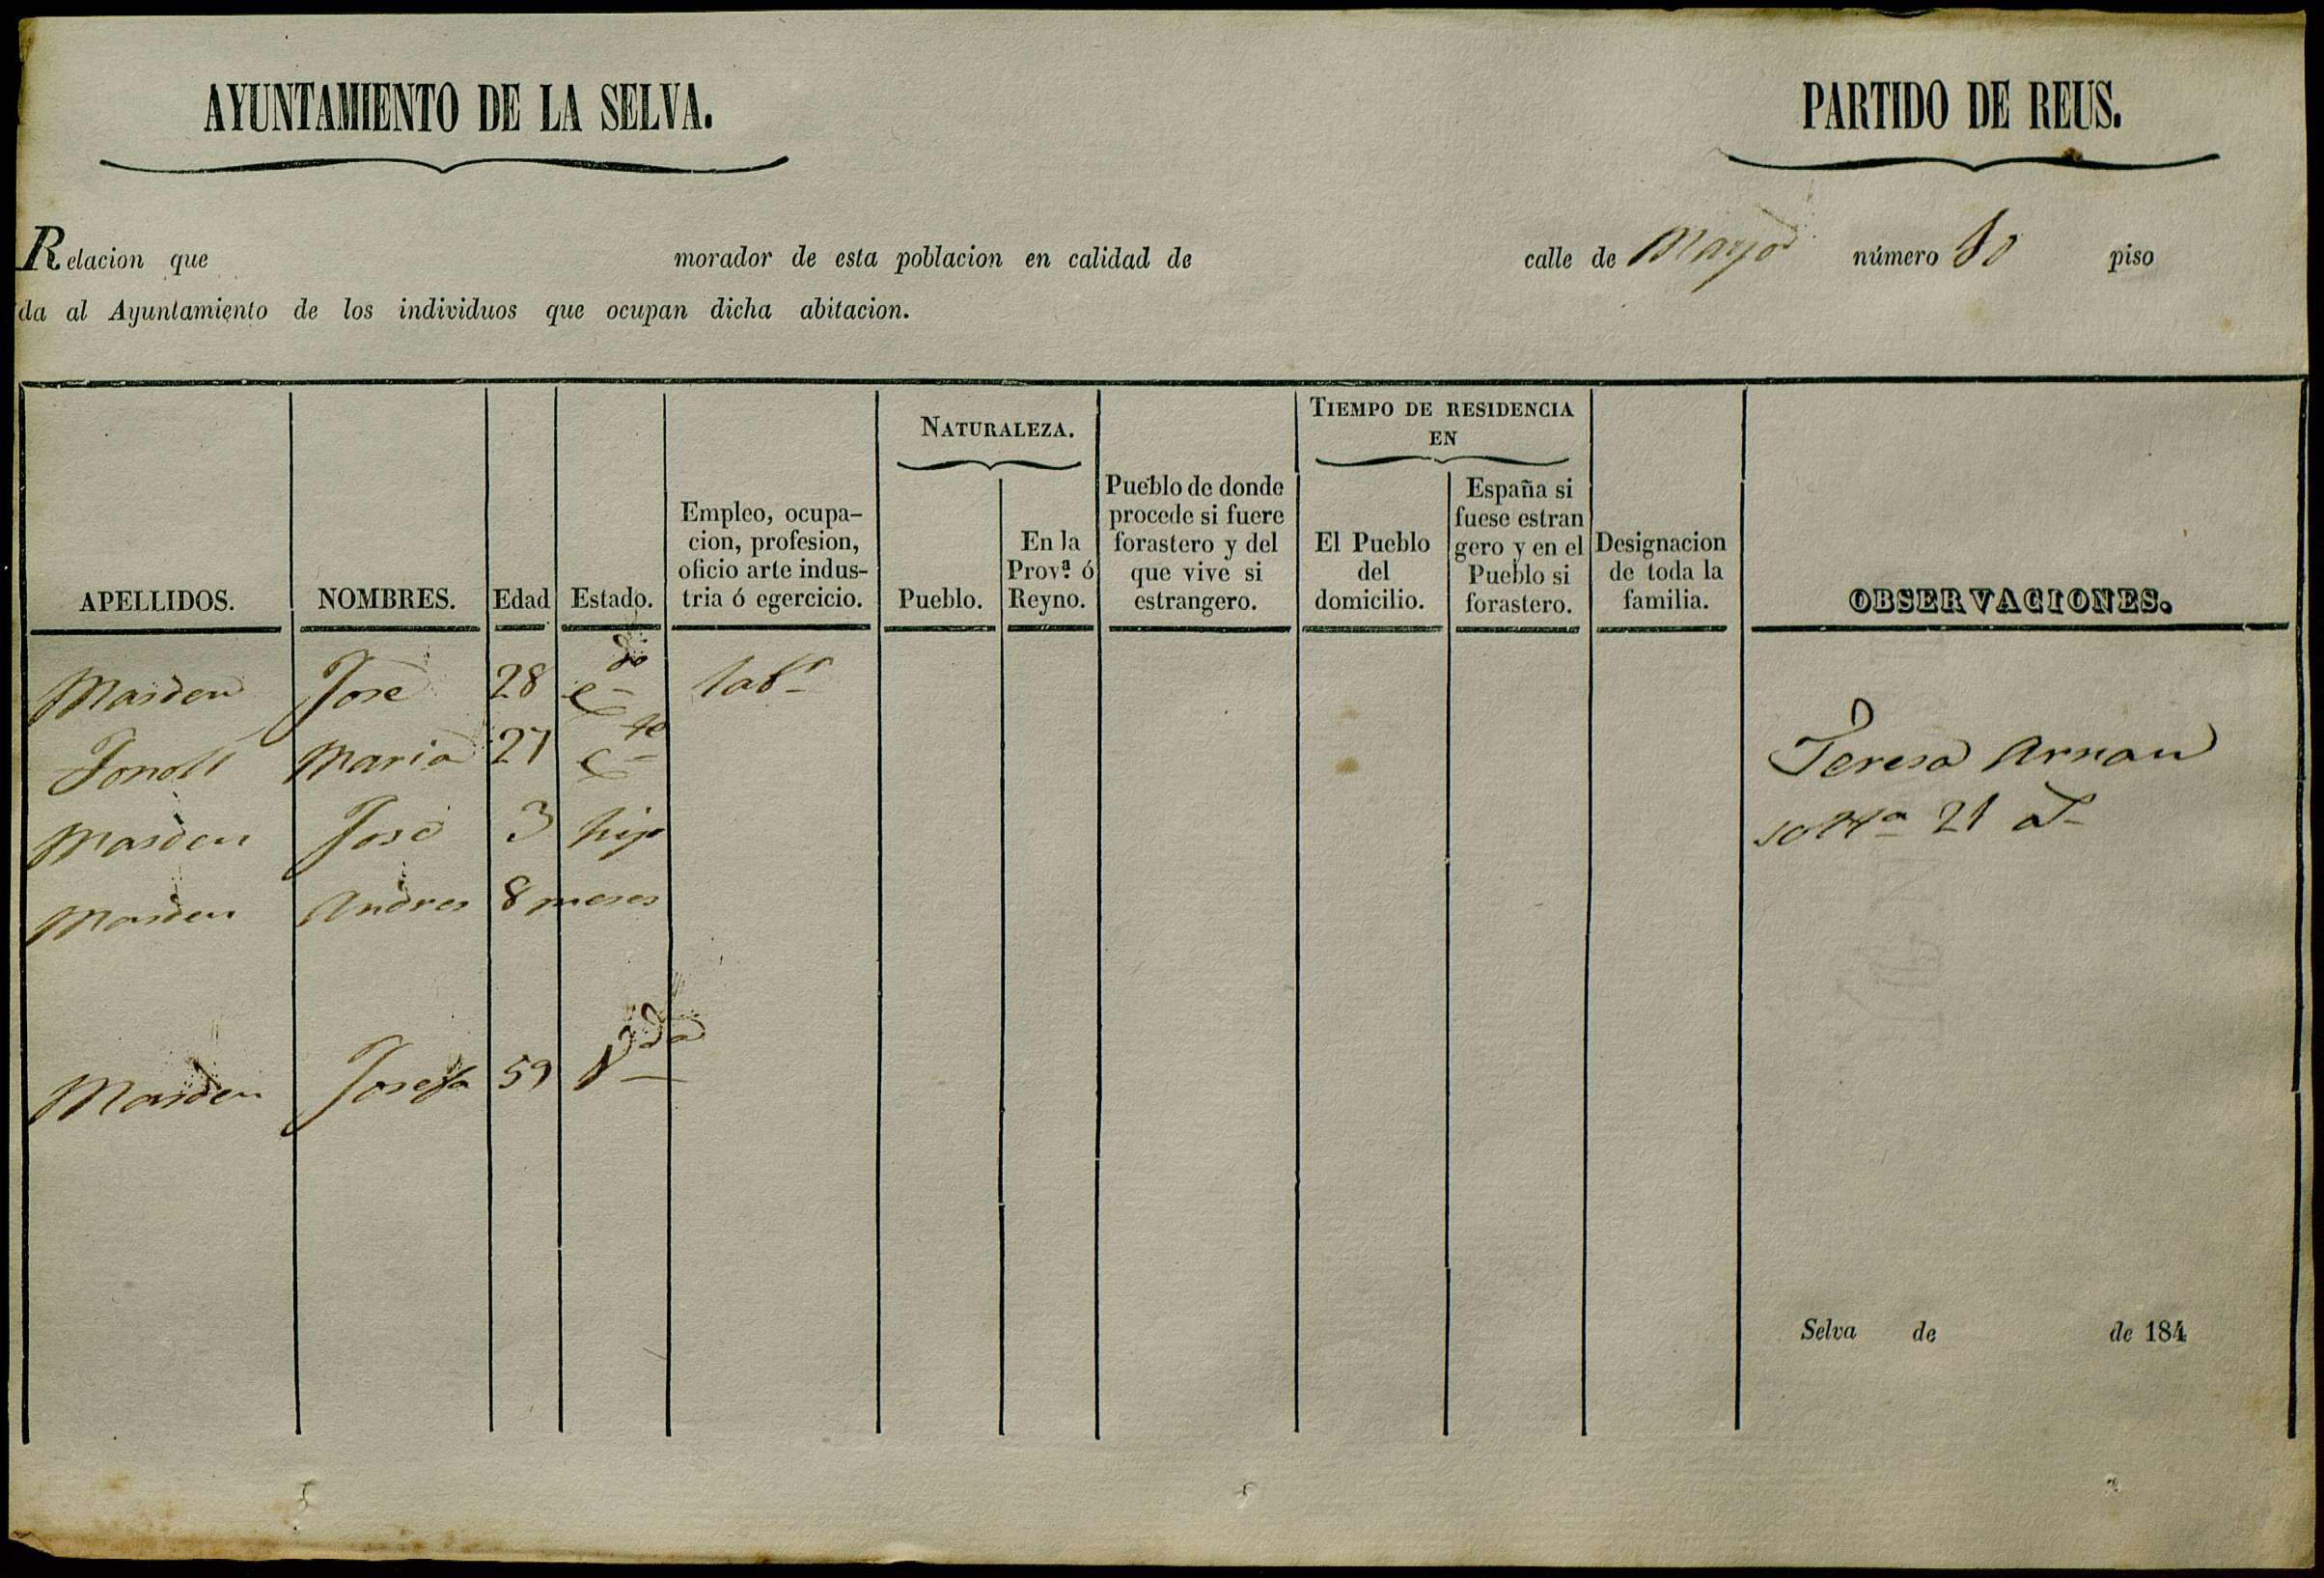 AYUNTAMIENTO DE LA SELVA. PARTIDO DE REUS.
Relacion que morador de esta poblacion en calidad de calle de Mayor número piso
da al Ayuntamiento de los individuos que ocupan dicha abitacion.
NATURALEZA.
TIEMPO DE RESIDENCIA
EN
APELLIDOS.
NOMBRES.
Edad
Estado.
Empleo, ocupa-
cion, profesion,
oficio arte indus-
tria ó egercicio.
Pueblo.
En la
Prov.ª ó
Reyno.
Pueblo de donde
procede si fuere
forastero y del
que vive si
estrangero.
El Pueblo
del
domicilio.
España si
fuese estran
gero y en el
Pueblo si
forastero.
Designacion
de toda la
familia.
OBSERVACIONES.
Masdeu José 28 C.do labr
Fonoll Maria 27 C
Masdeu José 3 hijo
Masdeu Andres 8 meses
Masdeu Josefa 59 Vda
Teresa Arnau
soltra 21 
Selva de de 184